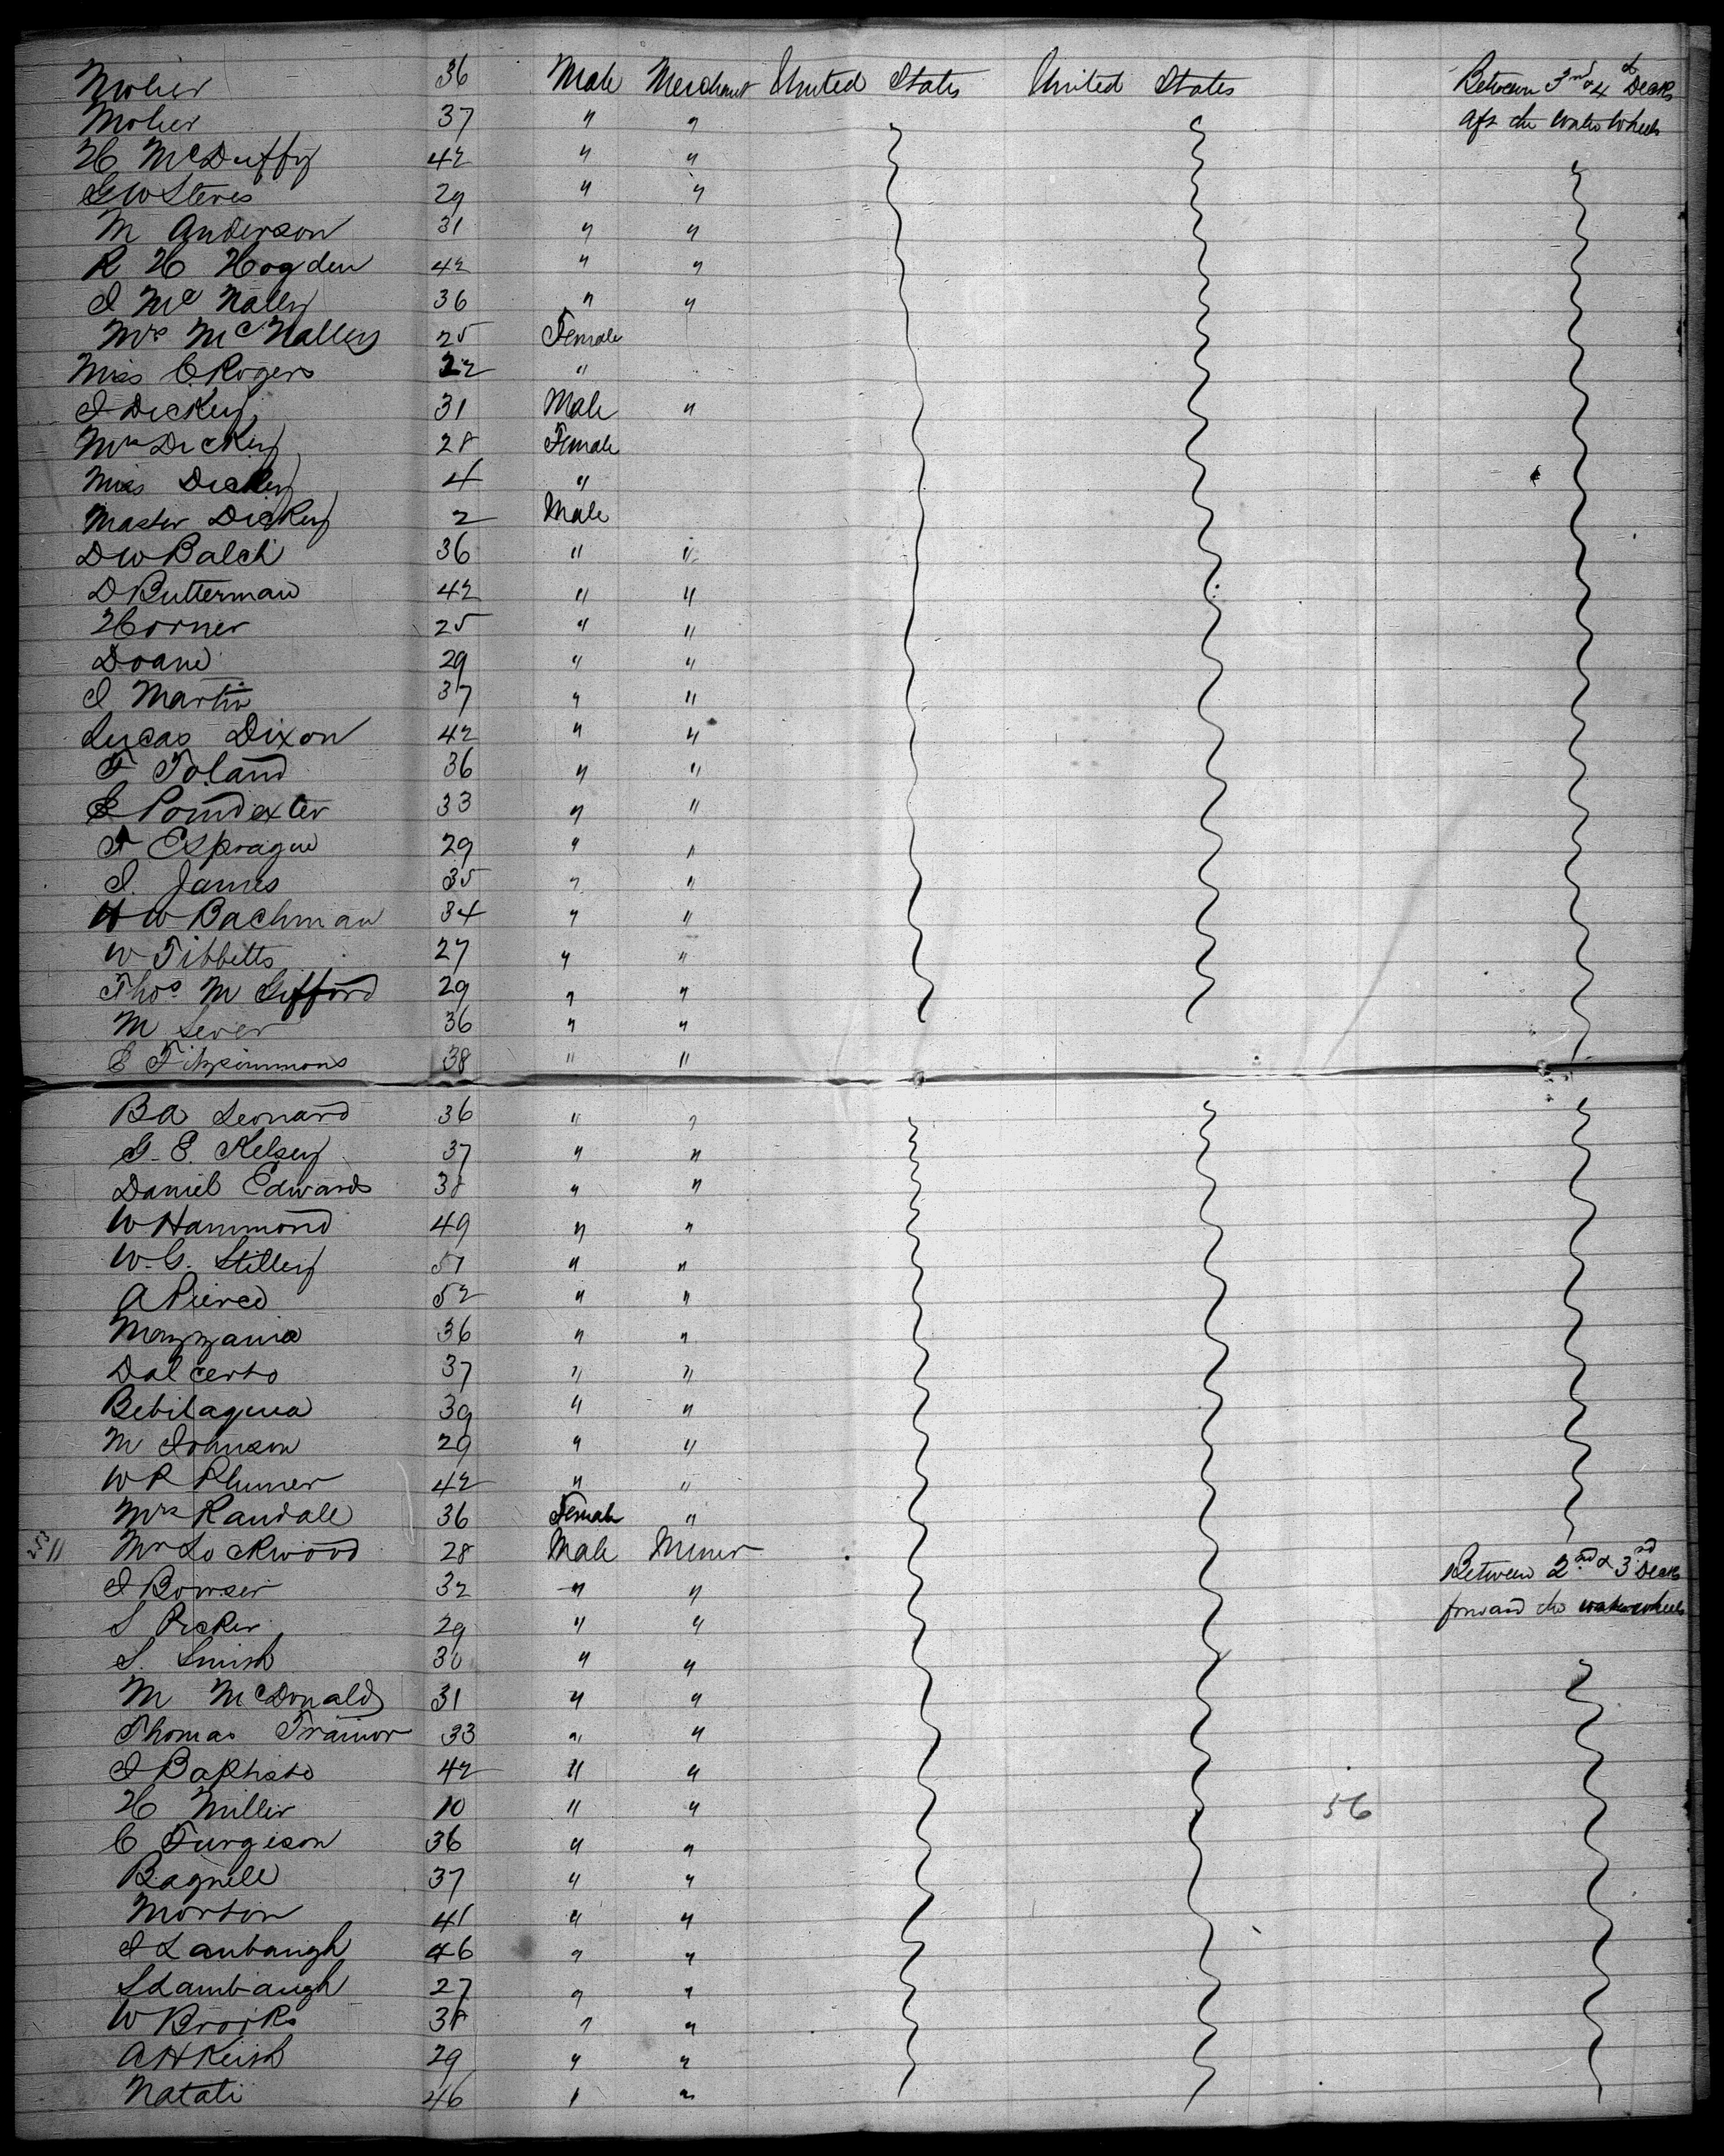 Moher 36 Male Merchant United States United States Between 3rd & 4th Decks
Moher 37 " " aft the water wheels
H McDuffy 42 " "
G W Steves 29 " "
M Anderson 31 " "
R H Hogden 42 " "
I Mc Nally 36 " "
Mrs McNalley 25 Female
Miss C. Rogers 22 "
I Dickey 31 Male "
Mrs Dickey 28 Female
Miss Dickey 4 "
Master Dickey 2 Male
D W Balch 36 " "
D Butterman 42 " "
Horner 25 " "
Doane 29 " "
I Martin 37 " "
Lucas Dixon 42 " "
F Toland 36 " "
Poindexter 33 " "
F E Sprague 29 " "
I. James 35 " "
H W Bachman 34 " "
W Tibbetts 27 " "
Thos M Gifford 29 " "
M Lever 36 " "
E Fitzsimmons 38 " "
B A Leonard 36 " "
G. E. Kelsey 37 " "
Daniel Edwards 38 " "
W Hammond 49 " "
W. G. Stilley 51 " "
A Pierce 52 " "
Mazzania 36 " "
Dalcerto 37 " "
Bebilaqua 39 " "
M Johnson 29 " "
W R Plumer 42 " "
Mrs Randall 36 Female "
Mr Lockwood 28 Male Miner Between 2nd & 3rd Decks
I Bowser 32 " " forward the water wheels
S Picker 29 " "
S. Smith 30 " "
M McDonald 31 " "
Thomas Trainor 33 " "
I Baptisto 42 " "
H Miller 10 " " 56
C Furgison 36 " "
Bagnell 37 " "
Morton 41 " "
I Lambaugh 46 " "
S Lambaugh 27 " "
W Brooks 38 " "
A H Keish 29 " "
Natali 46 " "